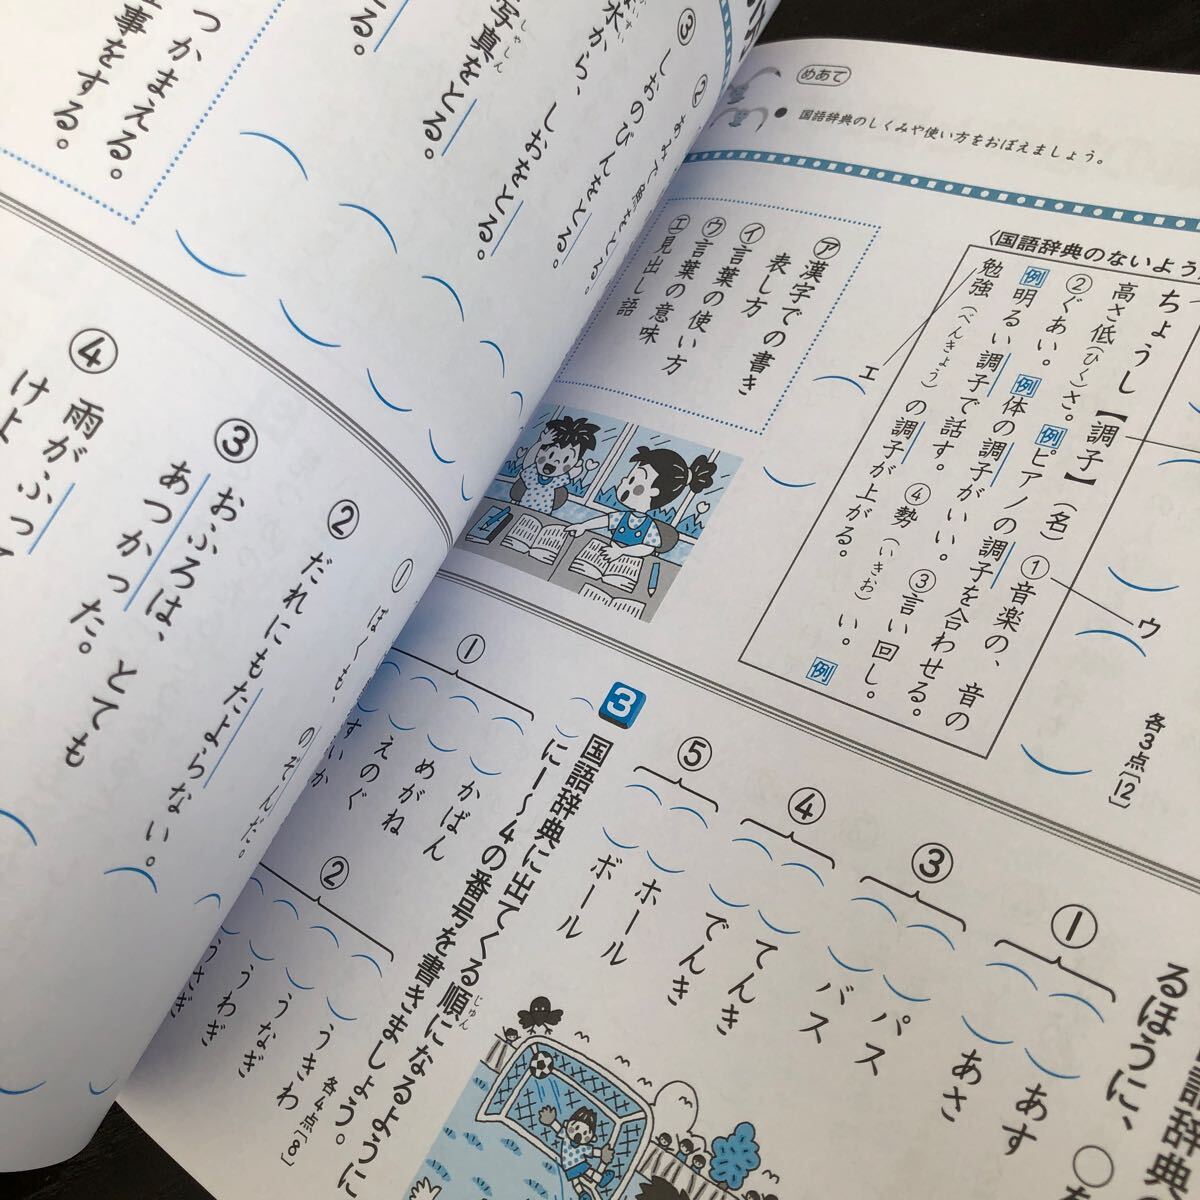 めあて
● 国語辞典のしくみや使い方をおぼえましょう。
〈国語辞典のないよう
ちょうし【調子】(名)①音楽の、音の
高さ低(ひく)さ。例ピアノの調子を合わせる。
②ぐあい。例体の調子がいい。③言い回し。
例明るい調子で話す。④勢(いきお)い。例
勉強(べんきょう)の調子が上がる。
エ
ウ
各3点〔12〕
ア漢字での書き
表し方
イ言葉の使い方
ウ言葉の意味
エ見出し語
るほうに、○
①
あす
あさ
③
パス
バス
④
てんき
でんき
⑤
ホール
ボール
3 国語辞典に出てくる順になるように
じゅん
に1〜4の番号を書きましょう。
各4点〔8〕
①
かばん
めがね
えのぐ
すいか
②
うきわ
うなぎ
うわぎ
うさぎ
③しおのびんをとる。
水から、しおをとる。
写真をとる。
しゃしん
る。
つかまえる。
事をする。
①ぼくも、のぞんだ。
②だれにもたよらない。
③おふろは、とても
あつかった。
④雨がふっ
けよ